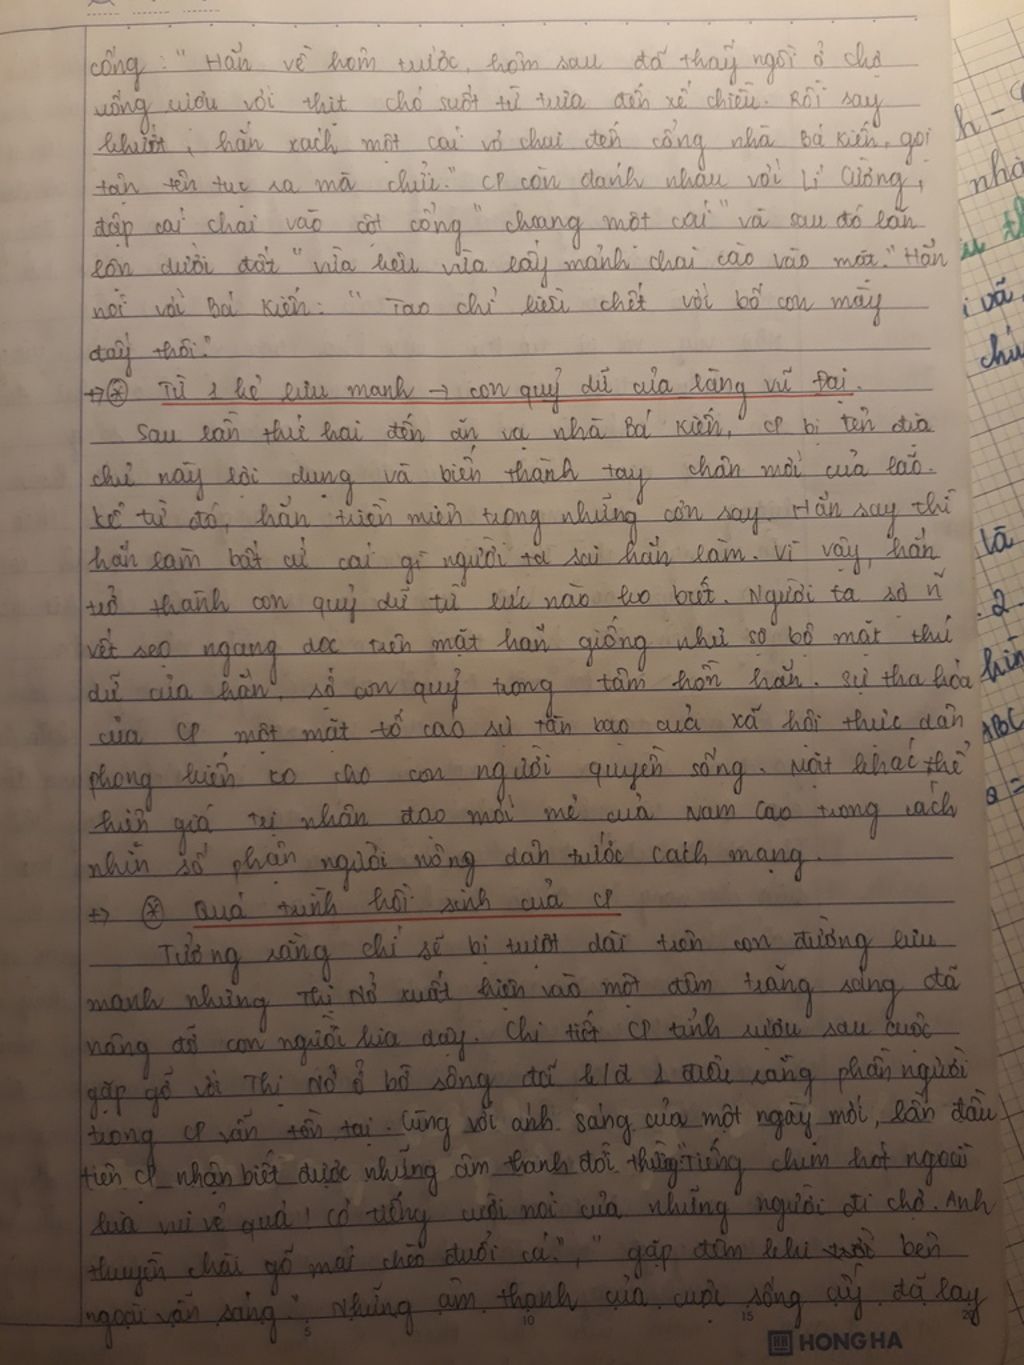 cổng: " Hắn về hôm trước, hôm sau đã thấy ngồi ở chợ
uống rượu với thịt chó suốt từ trưa đến xế chiều. Rồi say
khướt, hắn xách một cái vỏ chai đến cổng nhà Bá Kiến, gọi
tận tên tục ra mà chửi." CP còn đánh nhau với Lí Cường,
đập cái chai vào cột cổng "choang một cái" và sau đó lăn
lộn dưới đất "vừa kêu vừa lấy mảnh chai cào vào mặt." Hắn
nói với Bá Kiến: " Tao chỉ liều chết với bố con mày
đấy thôi."
+) * Từ 1 kẻ lưu manh → con quỷ dữ của làng Vũ Đại.
Sau lần thứ hai đến ăn vạ nhà Bá Kiến, CP bị tên địa
chủ này lợi dụng và biến thành tay chân mới của lão.
Kể từ đó, hắn triền miên trong những cơn say. Hắn say thì
hắn làm bất cứ cái gì người ta sai hắn làm. Vì vậy, hắn
trở thành con quỷ dữ từ lúc nào ko biết. Người ta sợ n~
vết sẹo ngang dọc trên mặt hắn giống như sợ bộ mặt thú
dữ của hắn, sợ con quỷ trong tâm hồn hắn. Sự tha hóa
của CP một mặt tố cáo sự tàn bạo của xã hội thực dân
phong kiến ko cho con người quyền sống. Mặt khác thể
hiện giá trị nhân đạo mới mẻ của Nam Cao trong cách
nhìn số phận người nông dân trước cách mạng.
+) * Quá trình hồi sinh của CP
Tưởng rằng chí sẽ bị trượt dài trên con đường lưu
manh nhưng Thị Nở xuất hiện vào một đêm trăng sáng đã
nâng đỡ con người kia dậy. Chi tiết CP tỉnh rượu sau cuộc
gặp gỡ với Thị Nở ở bờ sông đã k/đ 1 điều rằng phần người
trong CP vẫn tồn tại. Cùng với ánh sáng của một ngày mới, lần đầu
tiên CP nhận biết được những âm thanh đời thường "tiếng chim hót ngoài
kia vui vẻ quá! Có tiếng cười nói của những người đi chợ. Anh
thuyền chài gõ mái chèo đuổi cá.", " gặp đêm khi trời bên
ngoài vẫn sáng." Những âm thanh của cuộc sống ấy đã lay
5 10 15 20
HONG HA